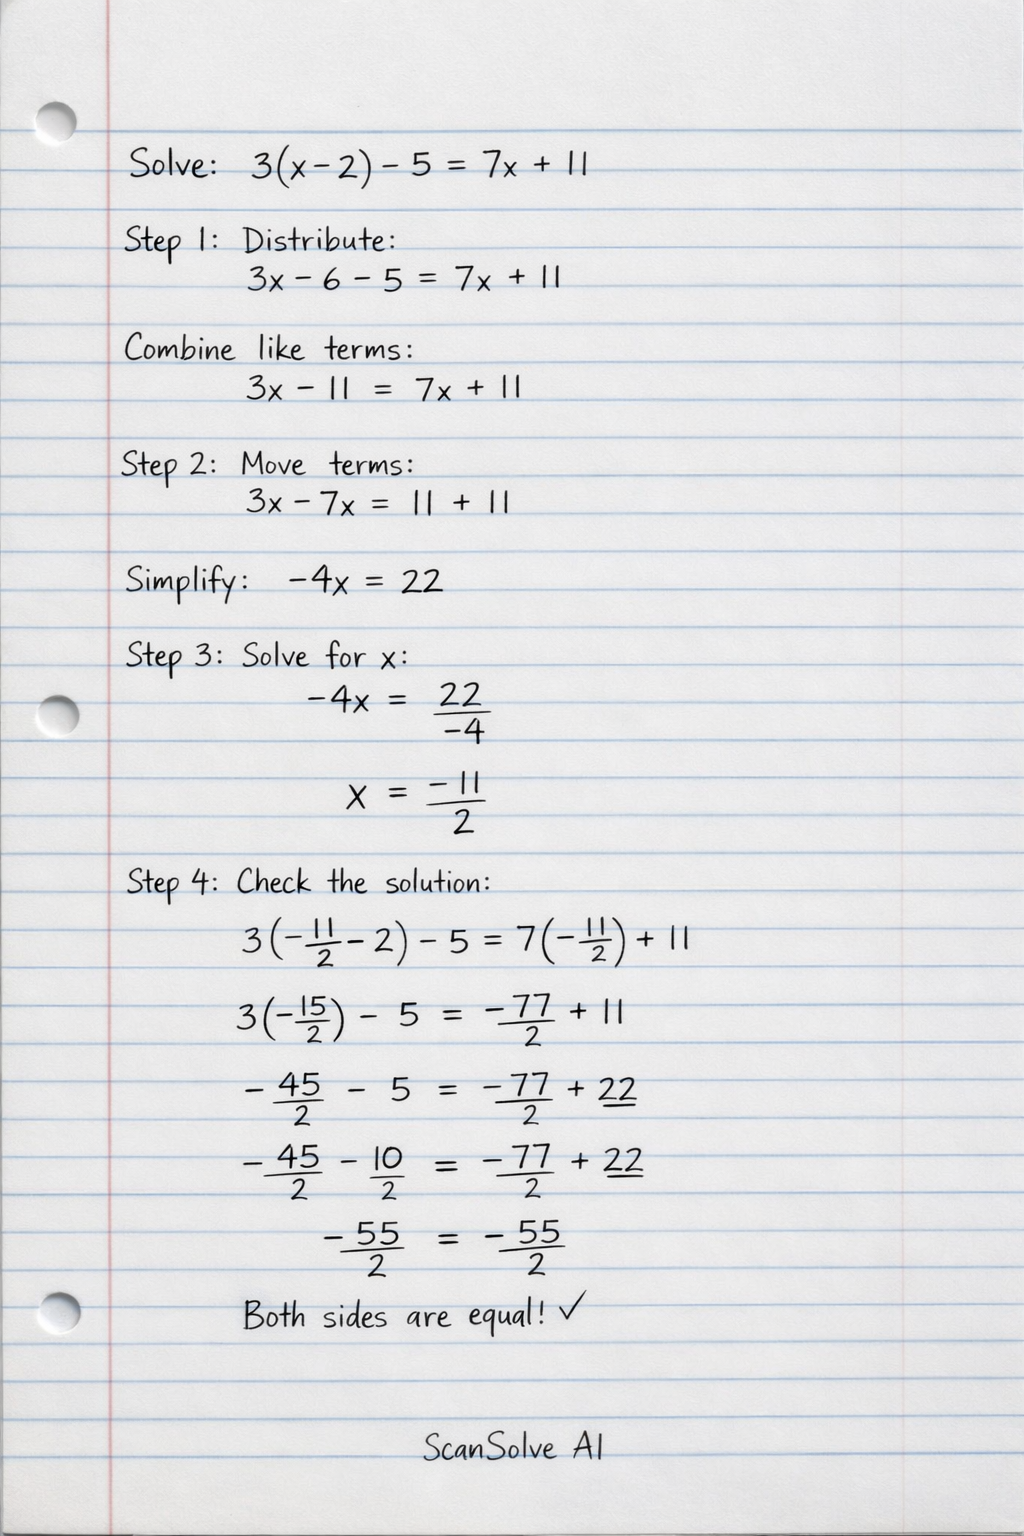 Solve: 3(x - 2) - 5 = 7x + 11
Step 1: Distribute:
3x - 6 - 5 = 7x + 11
Combine like terms:
3x - 11 = 7x + 11
Step 2: Move terms:
3x - 7x = 11 + 11
Simplify: -4x = 22
Step 3: Solve for x:
-4x = 22/-4
x = -11/2
Step 4: Check the solution:
3(-11/2 - 2) - 5 = 7(-11/2) + 11
3(-15/2) - 5 = -77/2 + 11
-45/2 - 5 = -77/2 + 22
-45/2 - 10/2 = -77/2 + 22
-55/2 = -55/2
Both sides are equal! ✓
ScanSolve AI